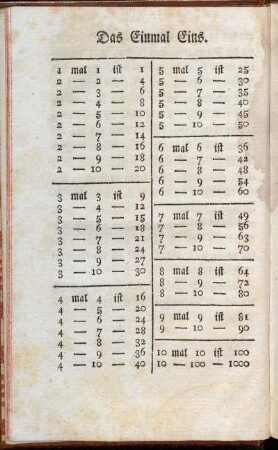 Das Einmal Eins.
1 mal 1 ist 1
2 — 2 — 4
2 — 3 — 6
2 — 4 — 8
2 — 5 — 10
2 — 6 — 12
2 — 7 — 14
2 — 8 — 16
2 — 9 — 18
2 — 10 — 20
3 mal 3 ist 9
3 — 4 — 12
3 — 5 — 15
3 — 6 — 18
3 — 7 — 21
3 — 8 — 24
3 — 9 — 27
3 — 10 — 30
4 mal 4 ist 16
4 — 5 — 20
4 — 6 — 24
4 — 7 — 28
4 — 8 — 32
4 — 9 — 36
4 — 10 — 40
5 mal 5 ist 25
5 — 6 — 30
5 — 7 — 35
5 — 8 — 40
5 — 9 — 45
5 — 10 — 50
6 mal 6 ist 36
6 — 7 — 42
6 — 8 — 48
6 — 9 — 54
6 — 10 — 60
7 mal 7 ist 49
7 — 8 — 56
7 — 9 — 63
7 — 10 — 70
8 mal 8 ist 64
8 — 9 — 72
8 — 10 — 80
9 mal 9 ist 81
9 — 10 — 90
10 mal 10 ist 100
10 — 100 — 1000